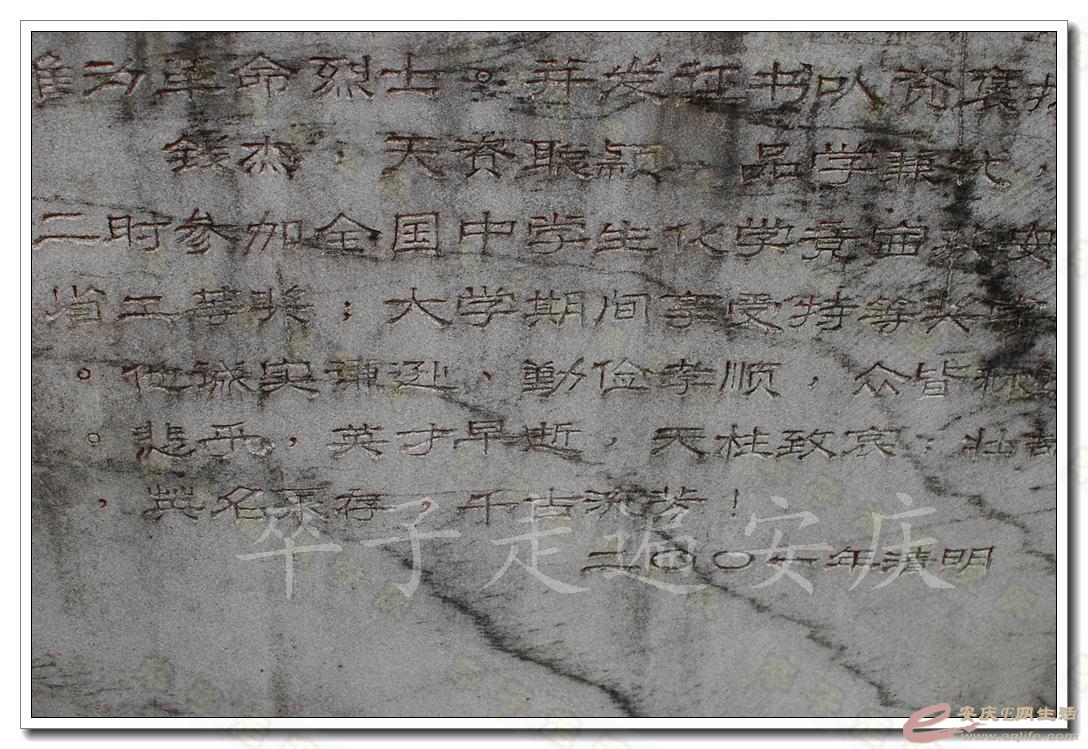 准为革命烈士。并发红书以资褒扬
钱杰,天资聪颖,品学兼优,
二时参加全国中学生化学竞赛获安
省二等奖;大学期间享受特等奖学
。他诚实谦逊、勤俭孝顺,众皆称
。悲乎,英才早逝,天柱致哀;壮
,英名永存,千古流芳!
二〇〇一年清明
卒子走遍安庆
安庆E网生活
www.aqlife.com